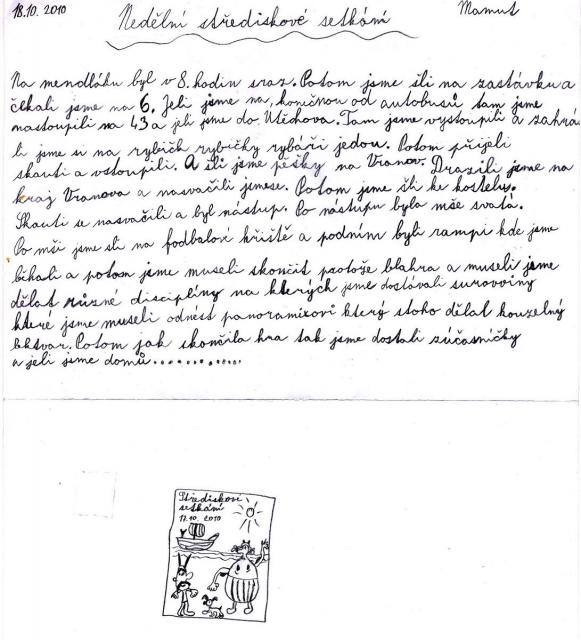 18.10. 2010 Nedělní střediskové setkání Mamut
Na mendláku byl v 8. hodin sraz. Potom jsme šli na zastávku a
čekali jsme na 6. Jeli jsme na, konečnou od autobusů tam jsme
nastoupili na 43 a jeli jsme do Útěchova. Tam jsme vystoupili a zahrá
li jsme si na rybích rybičky rybáři jedou. Potom přijeli
skauti a vstoupili. A šli jsme pěšky na Vranov. Drazili jsme na
kraj Vranova a nasvačili jsme se. Potom jsme šli ke kostelu.
Skauti se nasvačili a byl nástup. Po nástupu byla mše svatá.
Po mši jsme šli na fodbalové hřiště a podním byli rampi kde jsme
běhali a potom jsme museli skončit protože blahra a museli jsme
dělat různé disciplíny na kterých jsme dostávali surovoviny
které jsme museli odnést panoramixovi který stoho dělal kouzelný
lektvar. Potom jak skončila hra tak jsme dostali zúčasníčky
a jeli jsme domů............
Středískové
setkání
17.10. 2010